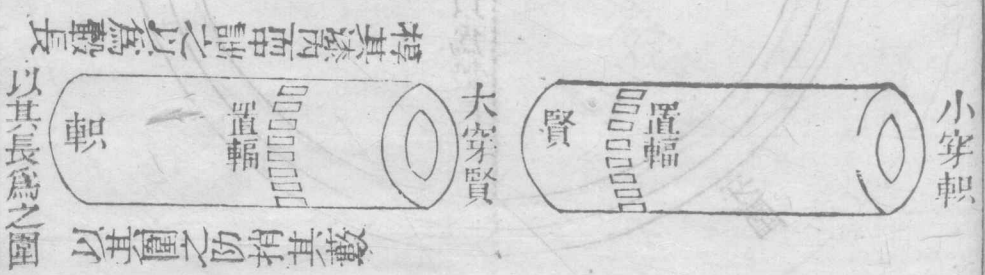 小穿軹
置輻
賢
大穿賢
置輻
軹
椁其漆內而中詘之以爲轂長
以其長爲之圍
以其圍之防捎其藪